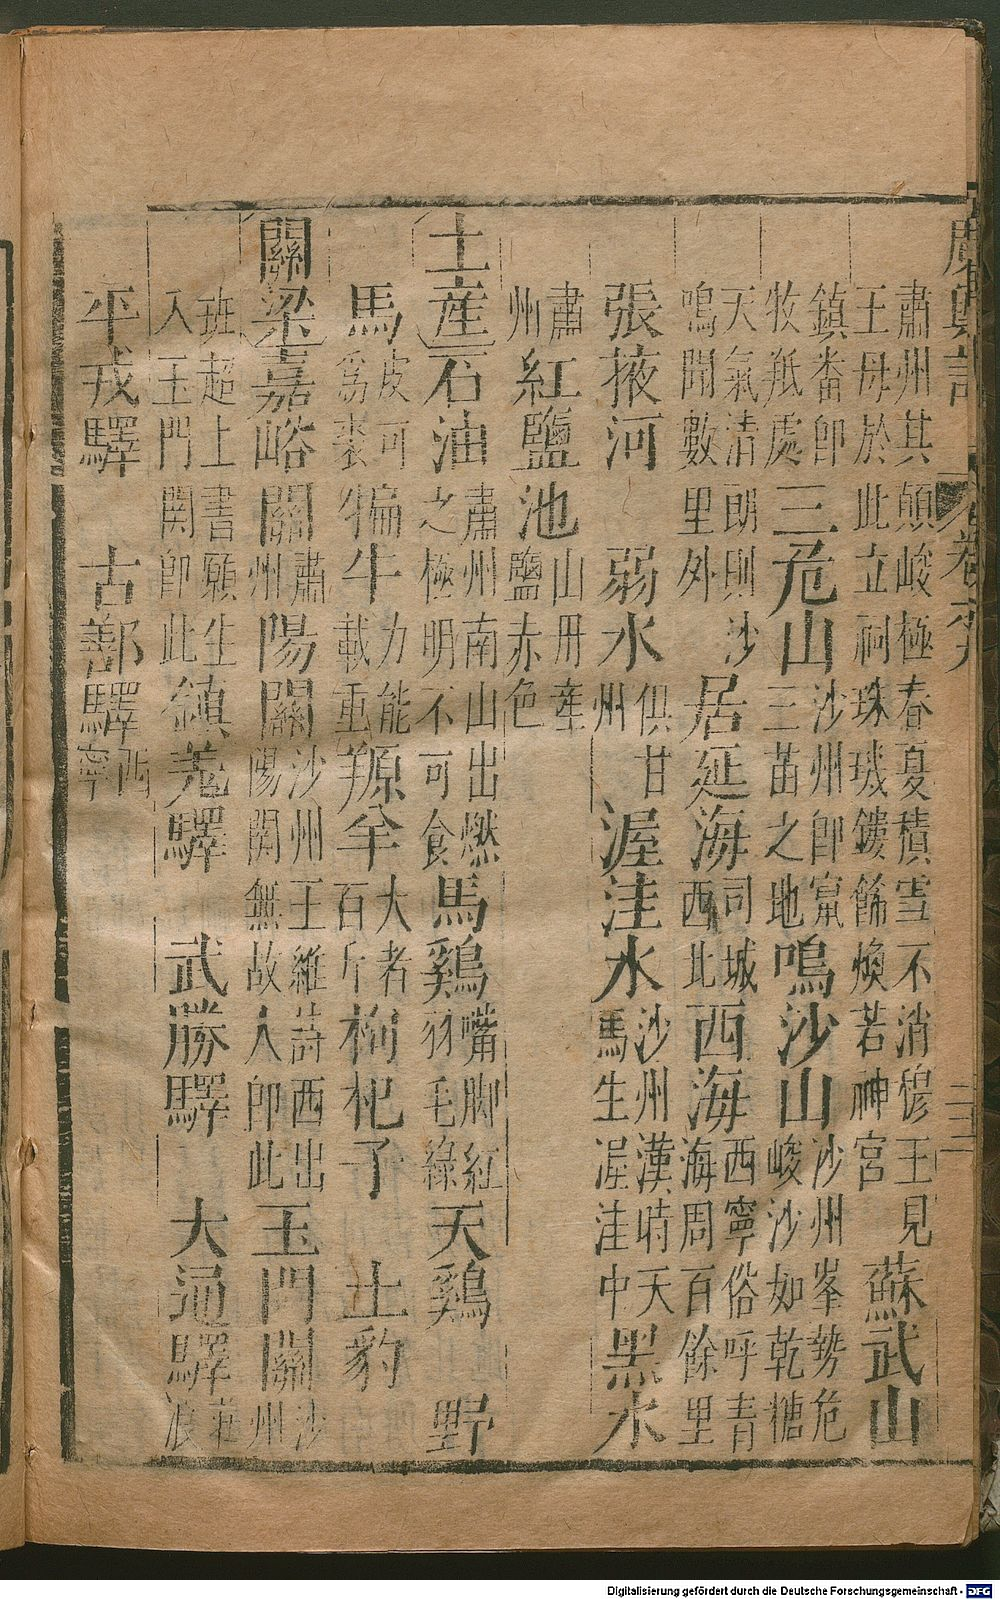 廣輿記 卷十九 二三
肅州其顛峻極春夏積雪不消穆王見
王母於此立祠珠璣鏤餙煥若神宮 蘇武山
鎮番卽
牧羝處 三危山 沙州卽竄
三苗之地 鳴沙山 沙州峯勢危
峻沙如乾糖
天氣清朗則沙
鳴聞數里外 居延海 司城
西北 西海 西寧俗呼青
海周百餘里
張掖河 弱水 俱甘
州 渥洼水 沙州漢時天
馬生渥洼中 黑水
肅
州 紅鹽池 山丹產
鹽赤色
土產 石油 肅州南山出燃
之極明不可食 馬鷄 嘴脚紅
羽毛綠 天鷄 野
馬 皮可
爲裘 犏牛 力能
載重 羱羊 大者
百斤 枸杞子 土豹
關梁 嘉峪關 肅
州 陽關 沙州王維詩西出
陽關無故人卽此 玉門關 沙
州
班超上書願生
入玉門関卽此 鎮羌驛 武勝驛 大通驛 莊
浪
平戎驛 古鄯驛 西
寧
Digitalisierung gefördert durch die Deutsche Forschungsgemeinschaft - DFG